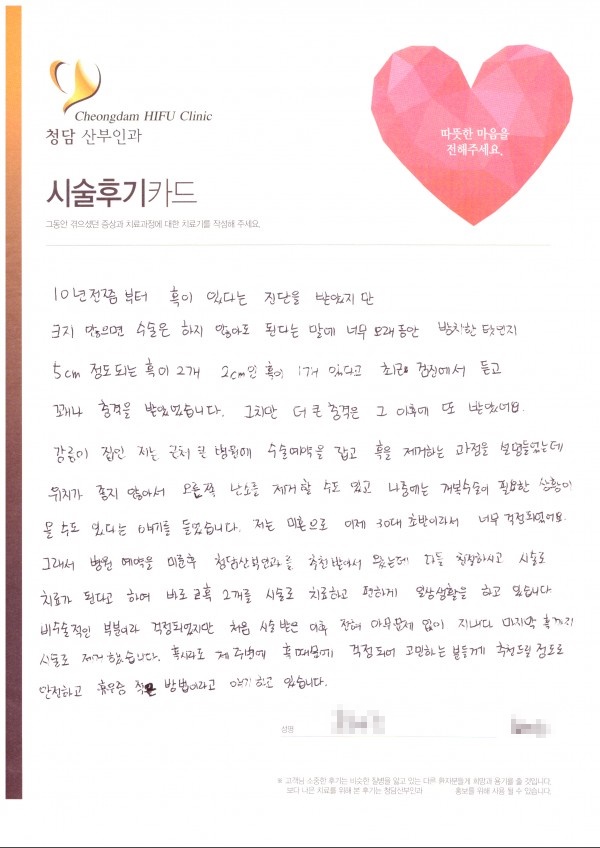 Cheongdam HIFU Clinic
청담 산부인과
따뜻한 마음을
전해주세요.
시술후기카드
그동안 겪으셨던 증상과 치료과정에 대한 치료기를 작성해 주세요.
10년전쯤 부터 혹이 있다는 진단을 받았지만
크지 않으면 수술은 하지 않아도 된다는 말에 너무 오래동안 방치한 탓인지
5cm 정도되는 혹이 2개 2cm인 혹이 1개 있다고 최근 검진에서 듣고
꽤나 충격을 받았었습니다. 그치만 더 큰 충격은 그 이후에 또 받았어요.
강릉이 집인 저는 근처 큰 병원에 수술예약을 잡고 혹을 제거하는 과정을 설명들었는데
위치가 좋지 않아서 오른쪽 난소를 제거할 수도 있고 나중에는 개복수술이 필요한 상황이
올 수도 있다는 얘기를 들었습니다. 저는 미혼으로 이제 30대 초반이라서 너무 걱정되었어요.
그래서 병원 예약을 미룬후 청담산부인과를 추천받아서 왔는데 다들 친절하시고 시술로
치료가 된다고 하여 바로 큰혹 2개를 시술로 치료하고 편하게 일상생활을 하고 있습니다
비수술적인 부분이라 걱정되었지만 처음 시술받은 이후 전혀 아무문제 없이 지내다 마지막 혹까지
시술로 제거했습니다. 혹시라도 제 주변에 혹 때문에 걱정되어 고민하는 분들께 추천드릴 정도로
안전하고 휴우증 적은 방법이라고 얘기하고 있습니다.
성명
※ 고객님 소중한 후기는 비슷한 질병을 앓고 있는 다른 환자분들께 희망과 용기를 줄 것입니다.
보다 나은 치료를 위해 본 후기는 청담산부인과 홍보를 위해 사용 될 수 있습니다.